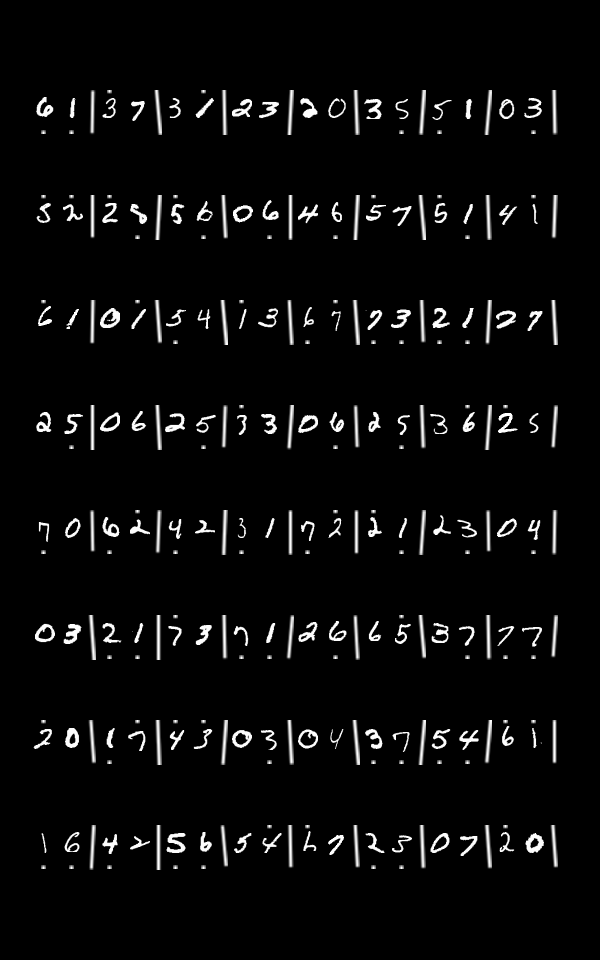 6 1 | 3 7 | 3 1 | 2 3 | 2 0 | 3 5 | 5 1 | 0 3 |
5 2 | 2 5 | 5 6 | 0 6 | 4 6 | 5 7 | 5 1 | 4 1 |
6 1 | 0 1 | 5 4 | 1 3 | 6 7 | 7 3 | 2 1 | 2 7 |
2 5 | 0 6 | 2 5 | 3 3 | 0 6 | 2 5 | 3 6 | 2 5 |
7 0 | 6 2 | 4 2 | 3 1 | 7 2 | 2 1 | 2 3 | 0 4 |
0 3 | 2 1 | 7 3 | 7 1 | 2 6 | 6 5 | 3 7 | 7 7 |
2 0 | 1 7 | 4 3 | 0 3 | 0 4 | 3 7 | 5 4 | 6 1 |
1 6 | 4 2 | 5 6 | 5 4 | 6 7 | 2 3 | 0 7 | 2 0 |